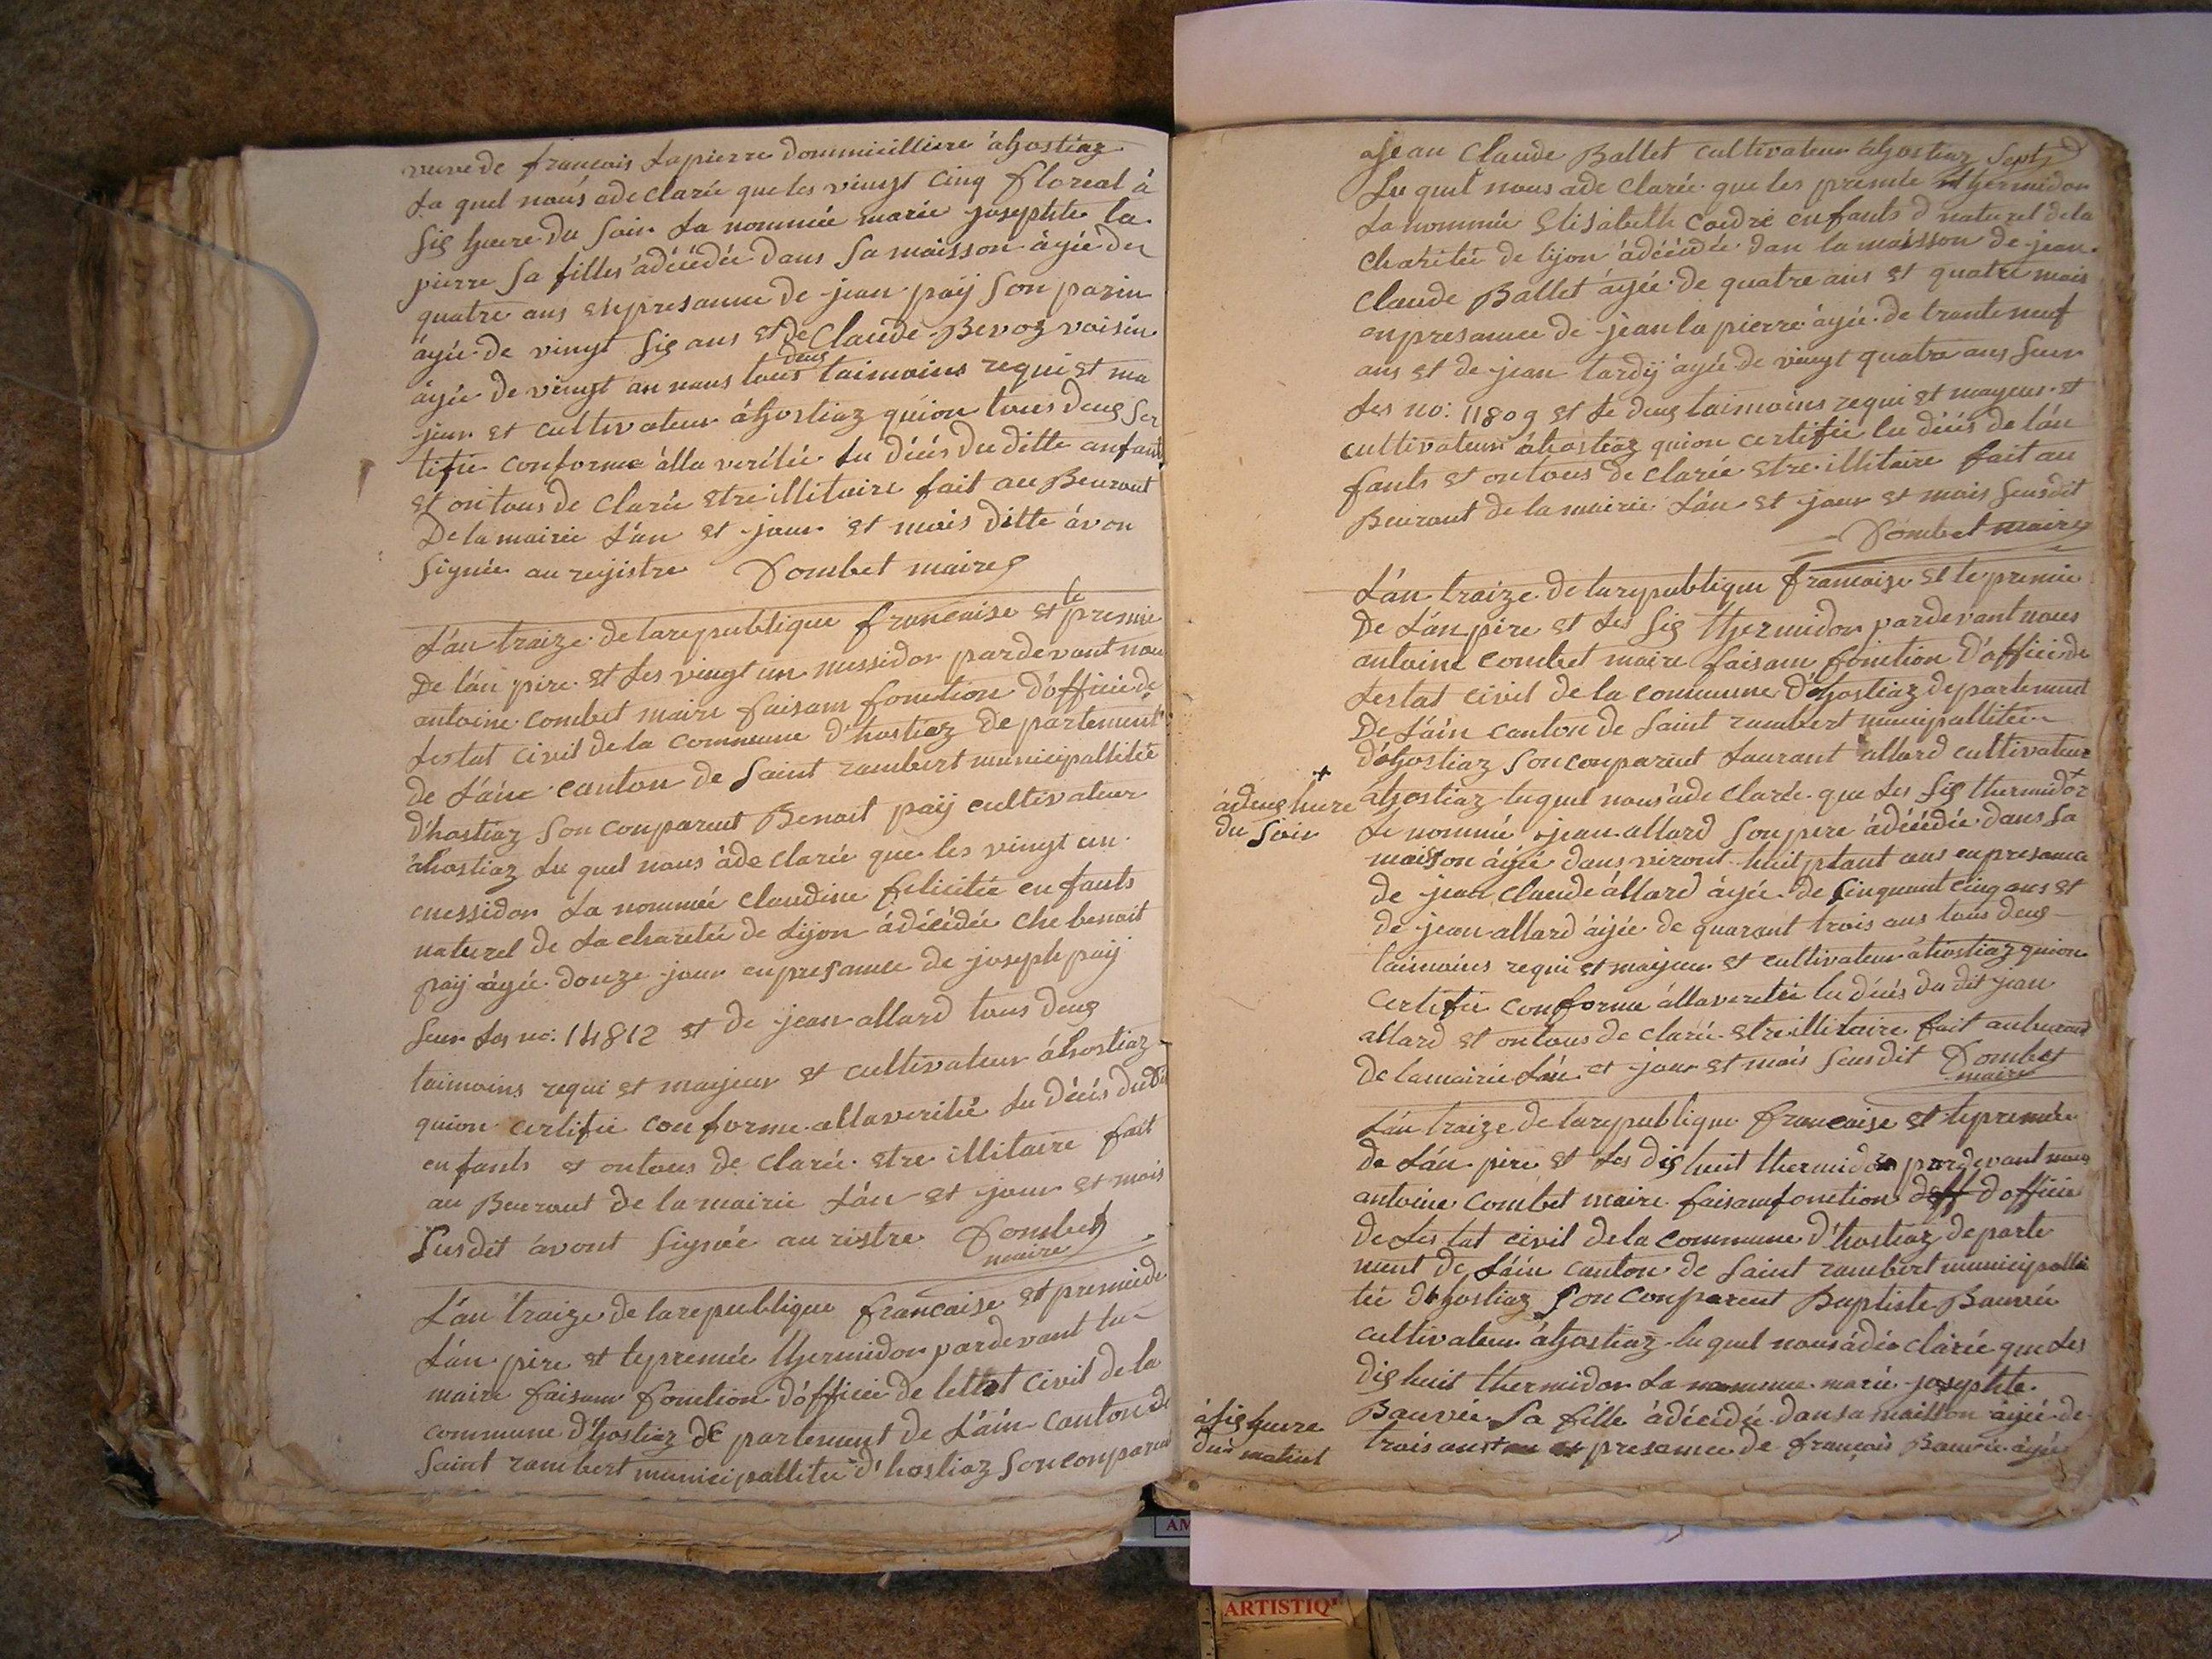 veuve de francois Lapierre dommicilliere àhostiaz
La quel nous ade clarée que les vingt cinq floreal à
sig heure du soir La nommée marie josephte la
pierre sa filles àdécédée dans sa maisson àgée de
quatre ans enpresanse de jean paÿ son parin
âgée de vingt sig ans et de Claude Bevoz voisin
âgée de vingt an nous tous deug taimoins requi et ma
jeur et cultivateur àhostiaz quion tous deug ser
tifie conforme àlla verités du décés du ditte anfant
et on tous de clarée etre illitaire fait au Beuraut
De la mairie L'an et jour et mois ditte àvon
signée au registre Combet maire
L'an traize de larepublique francaise et le premie
De l'an pire et les vingt un messidor pardevant nou
antoine combet maire faisam fonction d'officié de
Lestat civil de la commune d'hostiaz De partement
de L'áin canton de Saint rambert municipallitée
d'hostiaz son conparent Benoit paÿ cultivateur
àhostiaz Lu quel nous àde clarée que les vingt un
messidor La nommée claudine felicitée enfants
naturel de La charitée de Lijon àdécédée che benoit
paÿ àgée donze jour enpresance de joseph paÿ
seur les no: 14812 et de jean allard tous deug
taimoins requi et majeur et cultivateur àhostiaz
quion certifie conforme allaveritée Lu décés du dit
enfants et ontous de clarée etre illitaire fait
au Beuraut de la mairie L'an et jour et mois
susdit àvont signée au ristre Combet
maire
L'an traize de larepublique francaise et premie de
L'an pire et lepremée thermidor pardevant lu
maire faisam fonction d'officié de lettat civil de la
commune d'hostiaz de partement de L'áin canton de
Saint rambert municipallitée d'hostiaz son conparent
jean Claude Ballet cultivateur àhostiaz
Lu quel nous ade clarée que les premée thermidor
La nommée Elisabeth Coudri enfants d naturel dela
charitée de lijon àdécédée dan la maisson de jean
claude Ballet àgée de quatre ans et quatre mois
enpresance de jean la pierre àgée de trante neuf
ans et de jean tardÿ àgée de vingt quatre ans seur
Les no: 11809 et le deug taimoins requi et mageur et
cultivateur àhostiaz quion certifie lu décés de l'an
fants et ontous de clarée etre illitaire fait au
Beuraut de la mairie L'an et jour et mois seusdit
Combet maire
L'an traize de larepublique francaise et lepremie
De L'anpire et Les sig thermidor pardevant nous
antoine combet maire faisam fonction d'officié de
Lestat civil de la commune d'hostiaz departement
De L'áin canton de Saint rambert municipallitée
d'hostiaz son conparent Laurant allard cultivateur
àhostiaz luquel nous àde clarée que Les sig thermidor +
+ àdeug heure
du soir
Le nommée jean allard son pere àdécédée dans sa
maisson àgée danviront huit ptant ans enpresance
de jean claude allard àgée de sinquant cinq ans et
de jean allard àgée de quarant trois ans tous deug
taimoins requi et majeur et cultivateur àhostiaz quion
certifie conforme allaveritée lu décés du dit jean
allard et ontous de clarée etre illitaire fait aubeuraut
de lamairie L'an et jour et mois seusdit Combet
maire
L'an traize de larepublique francaise et lepremée
de L'an pire et Les dig huit thermidor pardevant nous
antoine combet maire faisam fonction d'officié
de Lestat civil de la commune d'hostiaz departe
ment de L'áin canton de Saint rambert municipalli
tée d'hostiaz son conparent Baptiste Bauvée
cultivateur àhostiaz luquel nous àdé clarée que Les
dig huit thermidor La nommee marie josephte
Bauvée sa fille àdécédée dansa maisson àgée de
à sig heure
du matint
trois ans en presance de françois Bauvée àgée
ARTISTIQ